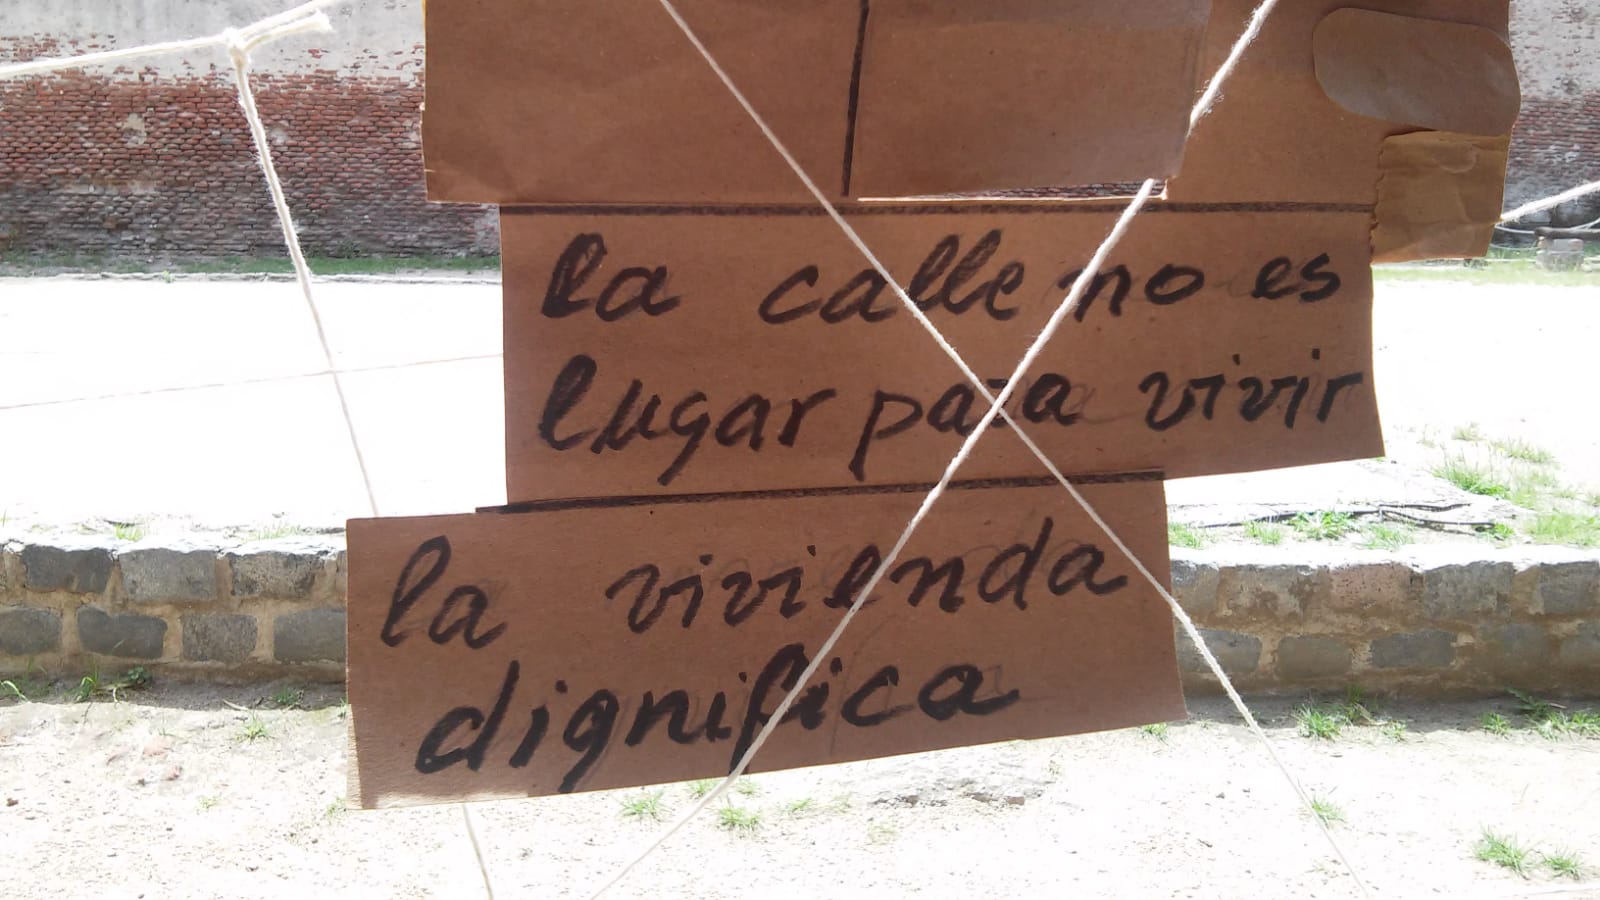 la calle no es
lugar para vivir
la vivienda
dignifica